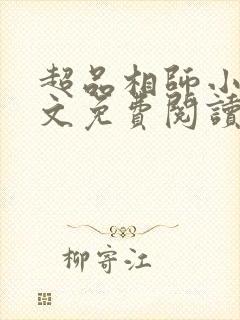 超品相師小
文免費閱讀
柳寄江